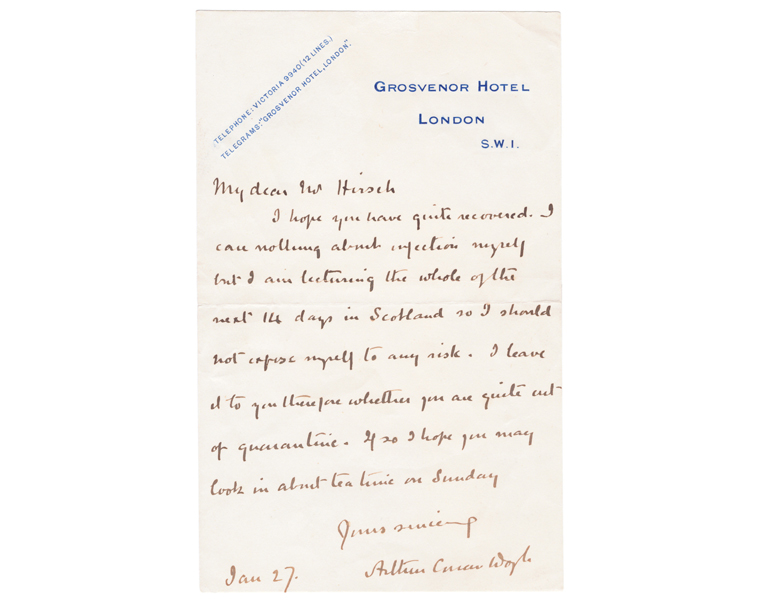 TELEPHONE: VICTORIA 9940 (12 LINES.)
TELEGRAMS: "GROSVENOR HOTEL, LONDON".
GROSVENOR HOTEL
LONDON
S.W.1.
My dear Mr Hirsch
I hope you have quite recovered. I
care nothing about infection myself
but I am lecturing the whole of the
next 14 days in Scotland so I should
not expose myself to any risk. I leave
it to you therefore whether you are quite out
of quarantine. If so I hope you may
look in about tea time on Sunday
Yours sincerely
Arthur Conan Doyle
Jan 27.